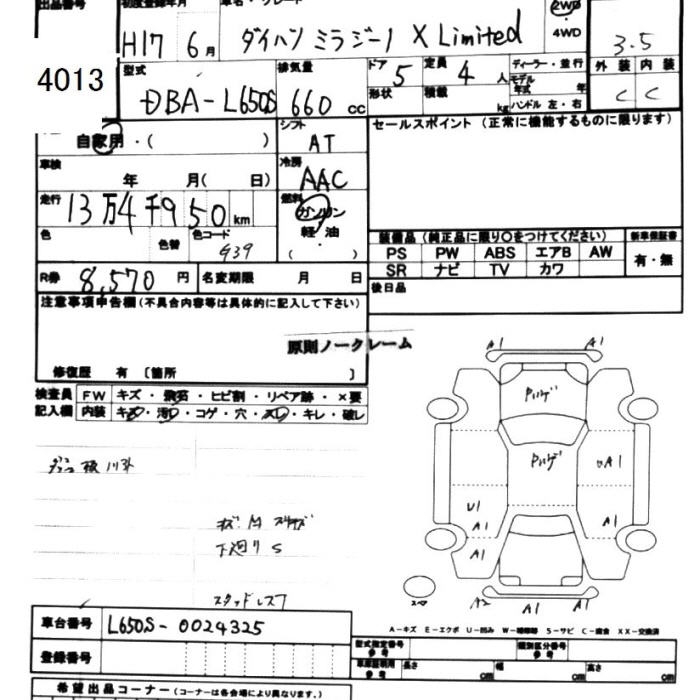 出品番号 初度登録年月 車名・グレード 2WD
H17 6月 ダイハツ ミラジーノ X Limited ・4WD 3.5
4013 型式 排気量 ドア 5 定員 4人 ディーラー・並行 外装 内装
DBA-L650S 660cc 形状 積載 kg モデル年式 年 C C
ハンドル 左・右
自家用・( ) シフト AT セールスポイント (正常に機能するものに限ります)
車検 年 月( 日) 冷房 AAC
走行 13万4千950km 燃料 ガソリン
色 色替 色コード G39 ・軽・油 ( )
装備品 (純正品に限り○をつけてください) 新車保証書
PS PW ABS エアB AW 有・無
SR ナビ TV カワ
R券 8,570円 名変期限 月 日 後日品
注意事項申告欄 (不具合内容等は具体的に記入して下さい)
原則ノークレーム
修復歴 有 〔箇所 〕
検査員 FW キズ・飛石・ヒビ割・リペア跡・×要
記入欄 内装 キズ・汚レ・コゲ・穴・スレ・キレ・破レ
A1 A1
A1
U1
A1 A1
A1
下廻りS
スタッドレス7
スペア A2 A1 A1
A-キズ E-エクボ U-凹み W-補修跡 S-サビ C-腐食 XX-交換済
車台番号 L650S-0024325
登録番号
型式指定番号 参考 類別区分番号 参考
車庫証明用 参考 長さ cm 幅 cm 高さ cm
希望出品コーナー (コーナーは各会場により異なります。)